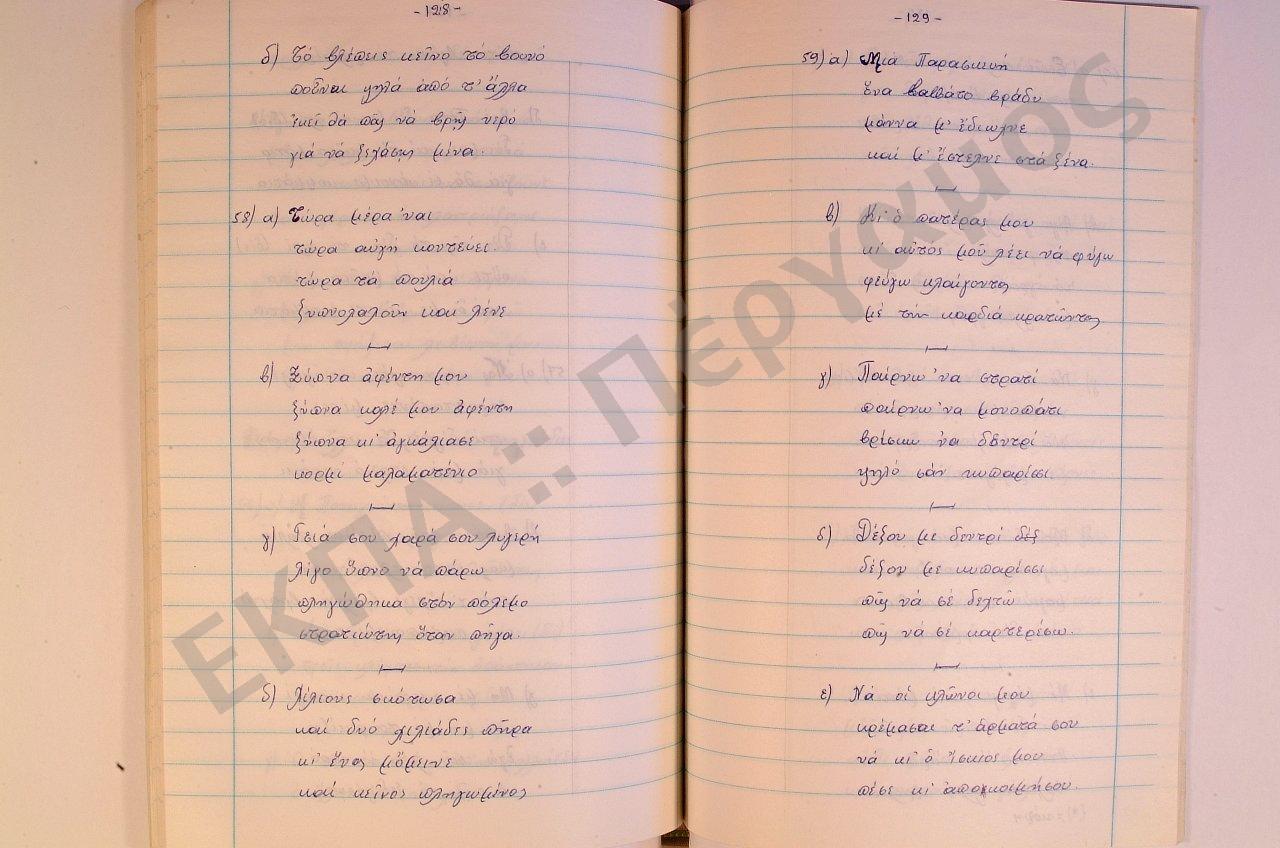 -128-
δ) τό βλέπεις κεῖνο τό βουνό
ποὖναι ψηλά ἀπό τ' ἄλλα
ἐκεῖ θά πᾶς νά βρῇς νερό
γιά νά ξεχάσῃς μένα.
58) α) Τώρα μέρα 'ναι
τώρα αὐγή κοντεύει.
τώρα τά πουλιά
ξυπνολαλοῦν καί λένε
β) Ξύπνα ἀφέντη μου
ξύπνα καλέ μου ἀφέντη
ξύπνα κι' ἀγκάλιασε
κορμί μαλαματένιο
γ) Γειά σου χαρά σου λυγερή
λίγο ὕπνο νά πάρω
πληγώθηκα στόν πόλεμο
στρατιώτης ὅταν πῆγα.
δ) Χίλιους σκότωσα
καί δυό χιλιάδες πῆρα
κι' ἕνας μὄμεινε
καί κεῖνος πληγωμένος
-129-
59) α) Μιά Παρασκευή
ἕνα Σαββάτο βράδυ
μάννα μ' ἔδιωχνε
καί μ' ἔστελνε στά ξένα.
β) Κι' ὁ πατέρας μου
κι' αὐτός μοῦ λέει νά φύγω
φεύγω κλαίγοντας
μέ τήν καρδιά κρατώντας
γ) Παίρνω 'να στρατί
παίρνω 'να μονοπάτι
βρίσκω 'να δεντρί
ψηλό σάν κυπαρίσσι.
δ) Δέξου με δεντρί δέξ
δέξου με κυπαρίσσι
πῶς νά σέ δεχτῶ
πῶς νά σέ καρτερέσω.
ε) Νά οἱ κλῶνοι μου
κρέμασαι τ' ἄρματά σου
νά κι' ὁ ἴσκιος μου
πέσε κι' ἀποκοιμήσου.
ΕΚΠΑ :: Πέργαμος